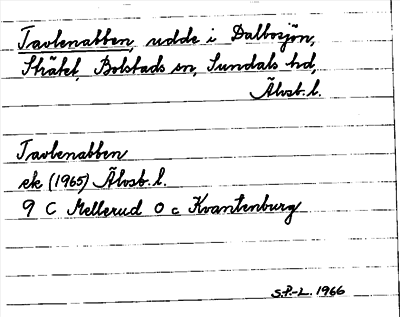 Tavlenabben, udde i Dalbosjön,
Stråket, Bolstads sn, Sundals hd,
Älvsb. l.
Tavlenabben
ek (1965) Älvsb. l.
9 C Mellerud O c Kvantenburg
S.P.-L. 1966